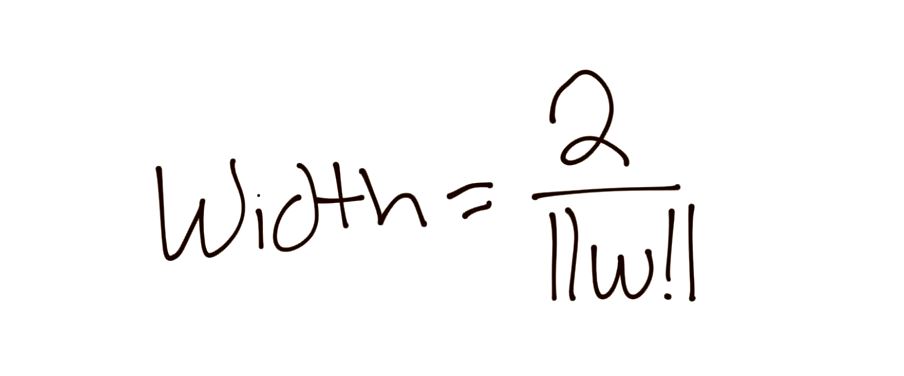 Width = 2 / ||w!|